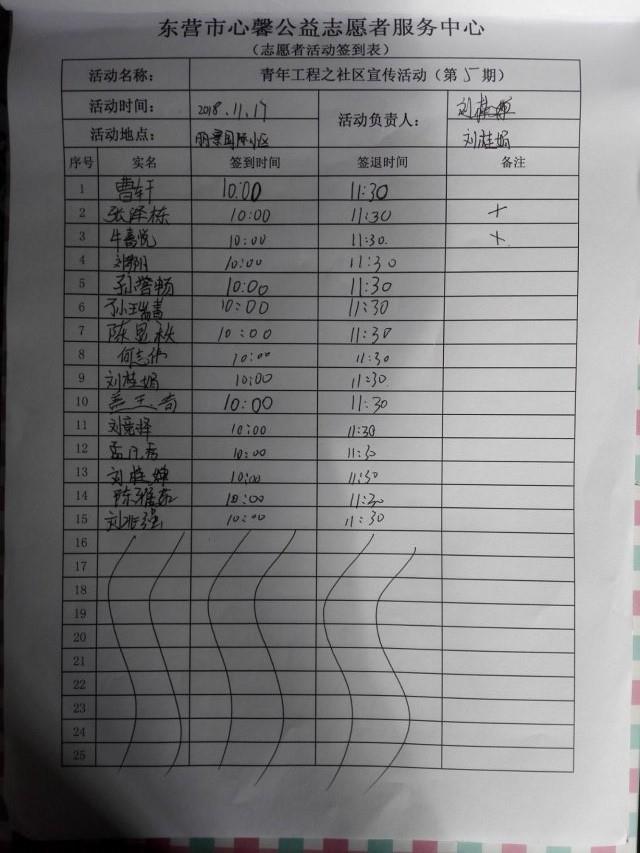 东营市心馨公益志愿者服务中心
（志愿者活动签到表）
活动名称： 青年工程之社区宣传活动（第5期）
活动时间： 2018.11.17 活动负责人： 刘桂婵
活动地点： 丽景国际小区 刘桂娟
序号 实名 签到时间 签退时间 备注
1 曹轩 10:00 11:30
2 张泽栋 10:00 11:30 +
3 牛喜悦 10:00 11:30. +
4 10:00 11:30
5 孙誉畅 10:00 11:30
6 孙瑞 10:00 11:30
7 陈 10:00 11:30
8 何志伟 10:00 11:30
9 刘桂娟 10:00 11:30.
10 10:00 11:30
11 刘竞择 10:00 11:30
12 10:00 11:30
13 刘桂婵 10:00 11:30
14 陈 10:00 11:30
15 刘 强 10:00 11:30
16
17
18
19
20
21
22
23
24
25